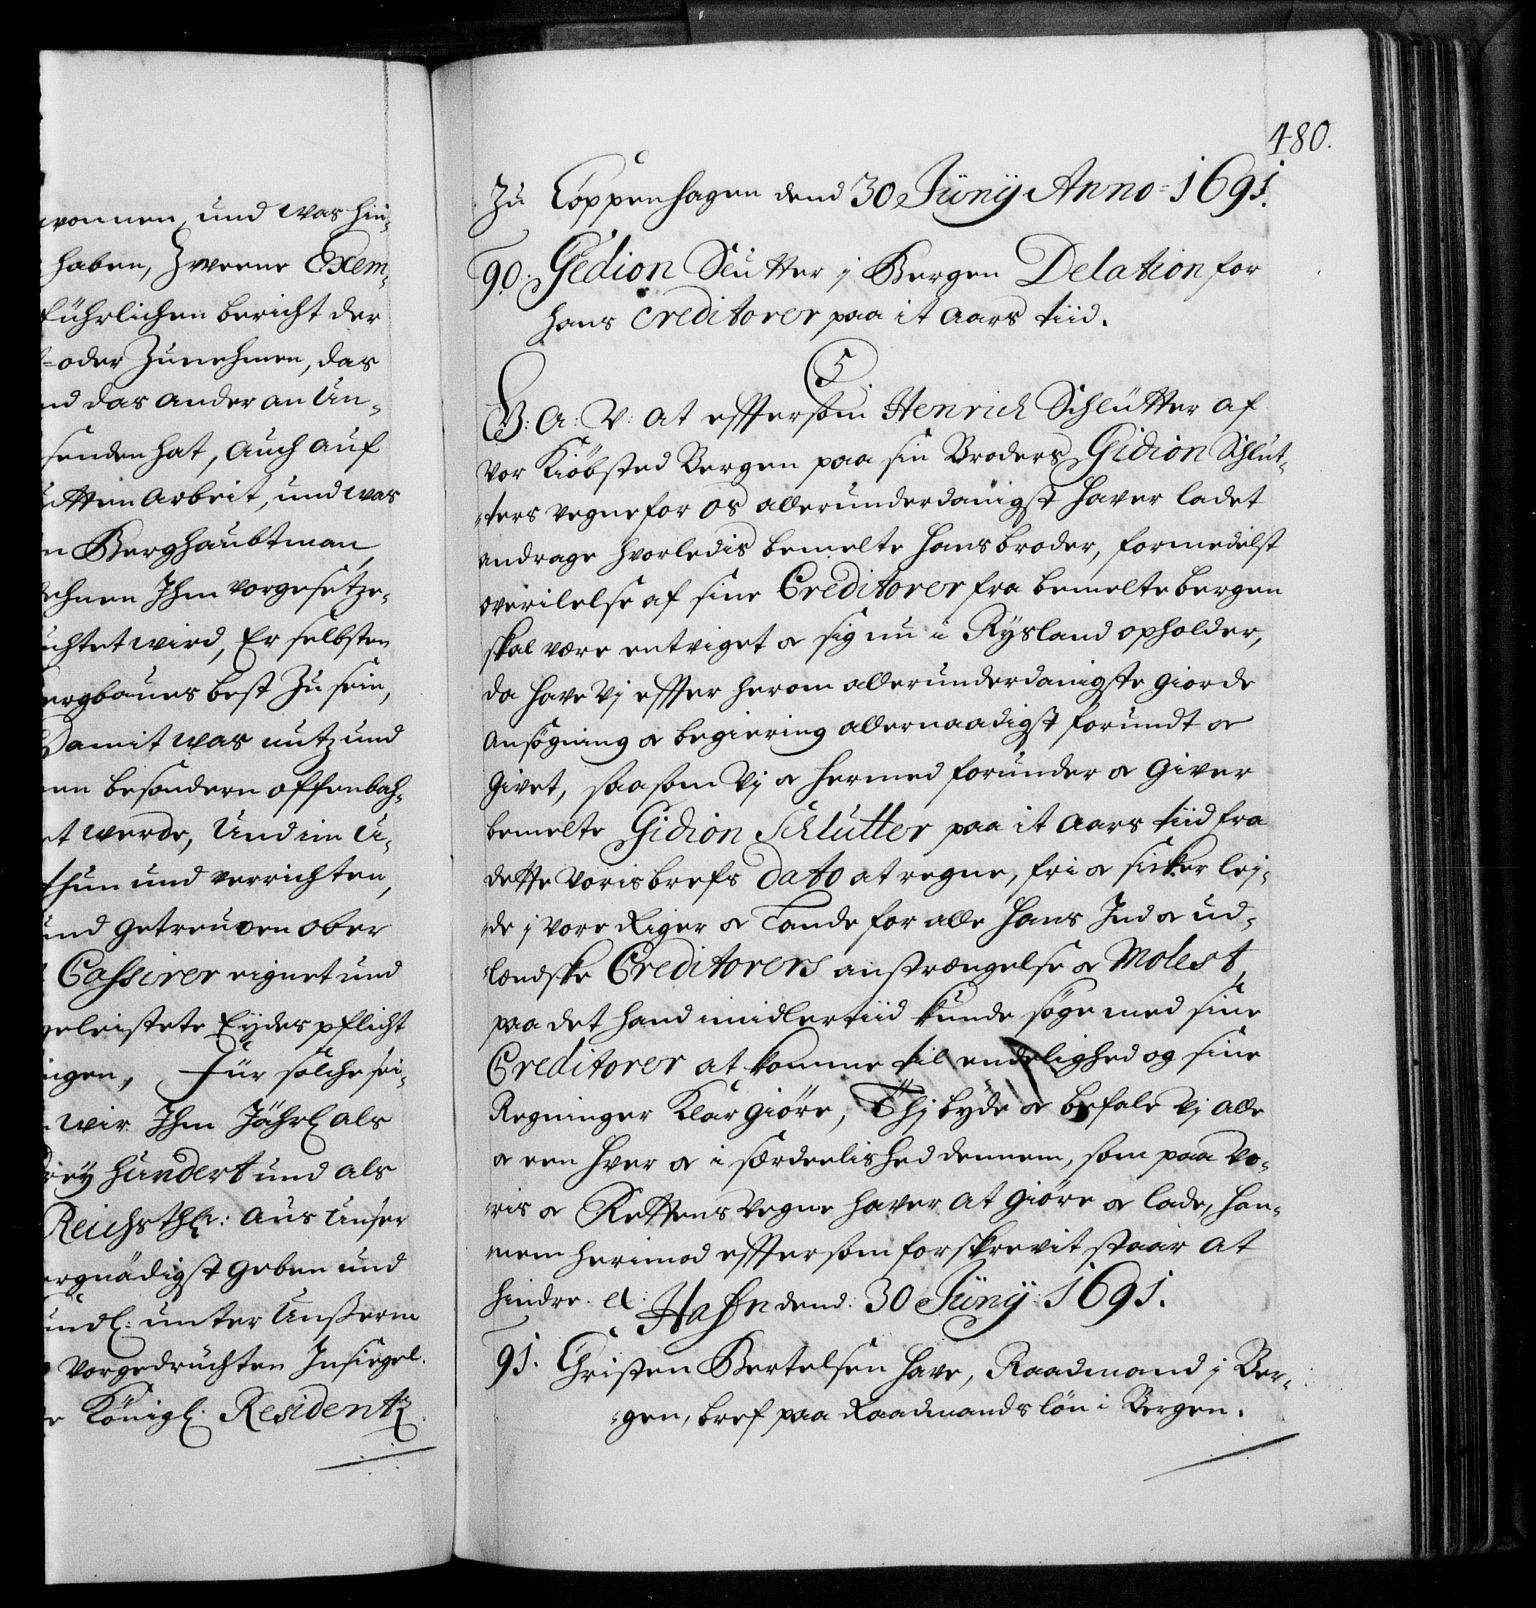 vonnen, und was hin-
haben, Zweene Exem-
führlichen bericht der
oder Zunehmen, das
nd das ander an Un-
senden hat, auch auf
tten Arbeit, und was
n Berghaubtman
hnen Ihm vorgesetze-
chtet wird, Er selbsten
ergbaues best Zu sein,
Damit was nutz und
en besondern offenbah-
et werde, Und im U-
thun und verrichten,
und getreuen ober
Cassirer eignet und
geleistete Eydes pflicht
ngen, Für solche sei-
wir Ihm Jährl als
rey hundert und als
Reichsthlr: aus Unser
ergnädigst geben und
undl: unter Unserm
vorgedruckten Insiegel.
Königl. Residentz.
480.
Zu Coppenhagen dend 30 Juny Anno 1691.
90. Gedion Slutter j Bergen Delation for
hans Creditorer paa it aars tiid.
C5
G: A: V: at efftersom Henrich Schlütter af
vor Kiöbsted Bergen paa sin Broders Gidion Schlut-
ters vegne for os allerunderdanigst haver ladet
andrage hvorledis bemelte hans broder, formedelst
overilelse af sine Creditorer fra bemelte bergen
skal være entviget & sig nu i Rysland opholder,
da have Vj effter herom allerunderdanigste giorde
Ansøgning & begiering allernaadigst forundt &
givet, saasom Vj & hermed forunder & giver
bemelte Gidion Schlutter paa it aars tiid fra
dette Voris brefs dato at regne, fri & sicker lej-
de j vore Riger & Lande for alle hans Ind & ud-
lendske Creditorers anstrængelse & Molest,
paa det hand imidlertiid kunde søge med sine
Creditorer at komme til endelighed og sine
Regninger Klar giøre, Thj byde & befale Vj alle
& een hver & i særdeelished dennem, som paa Vo-
ris & Rettens vegne haver at giøre & lade, han-
nem herimod efftersom forskrevit staar at
hindre. et: Hafn dend: 30 Juny 1691.
91. Christen Bertelsen Have, Raadmand j Ber-
gen, bref paa Raadmands løn i Bergen.